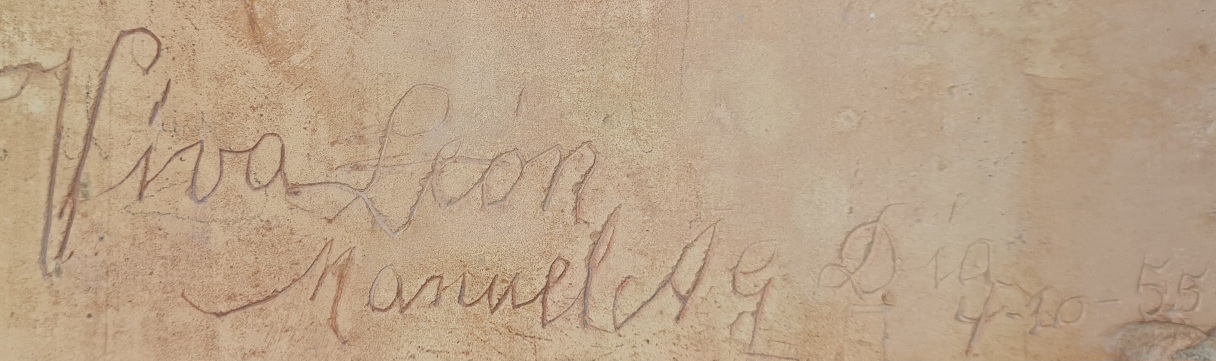 Viva León
Manuel A G Día
4-10-55